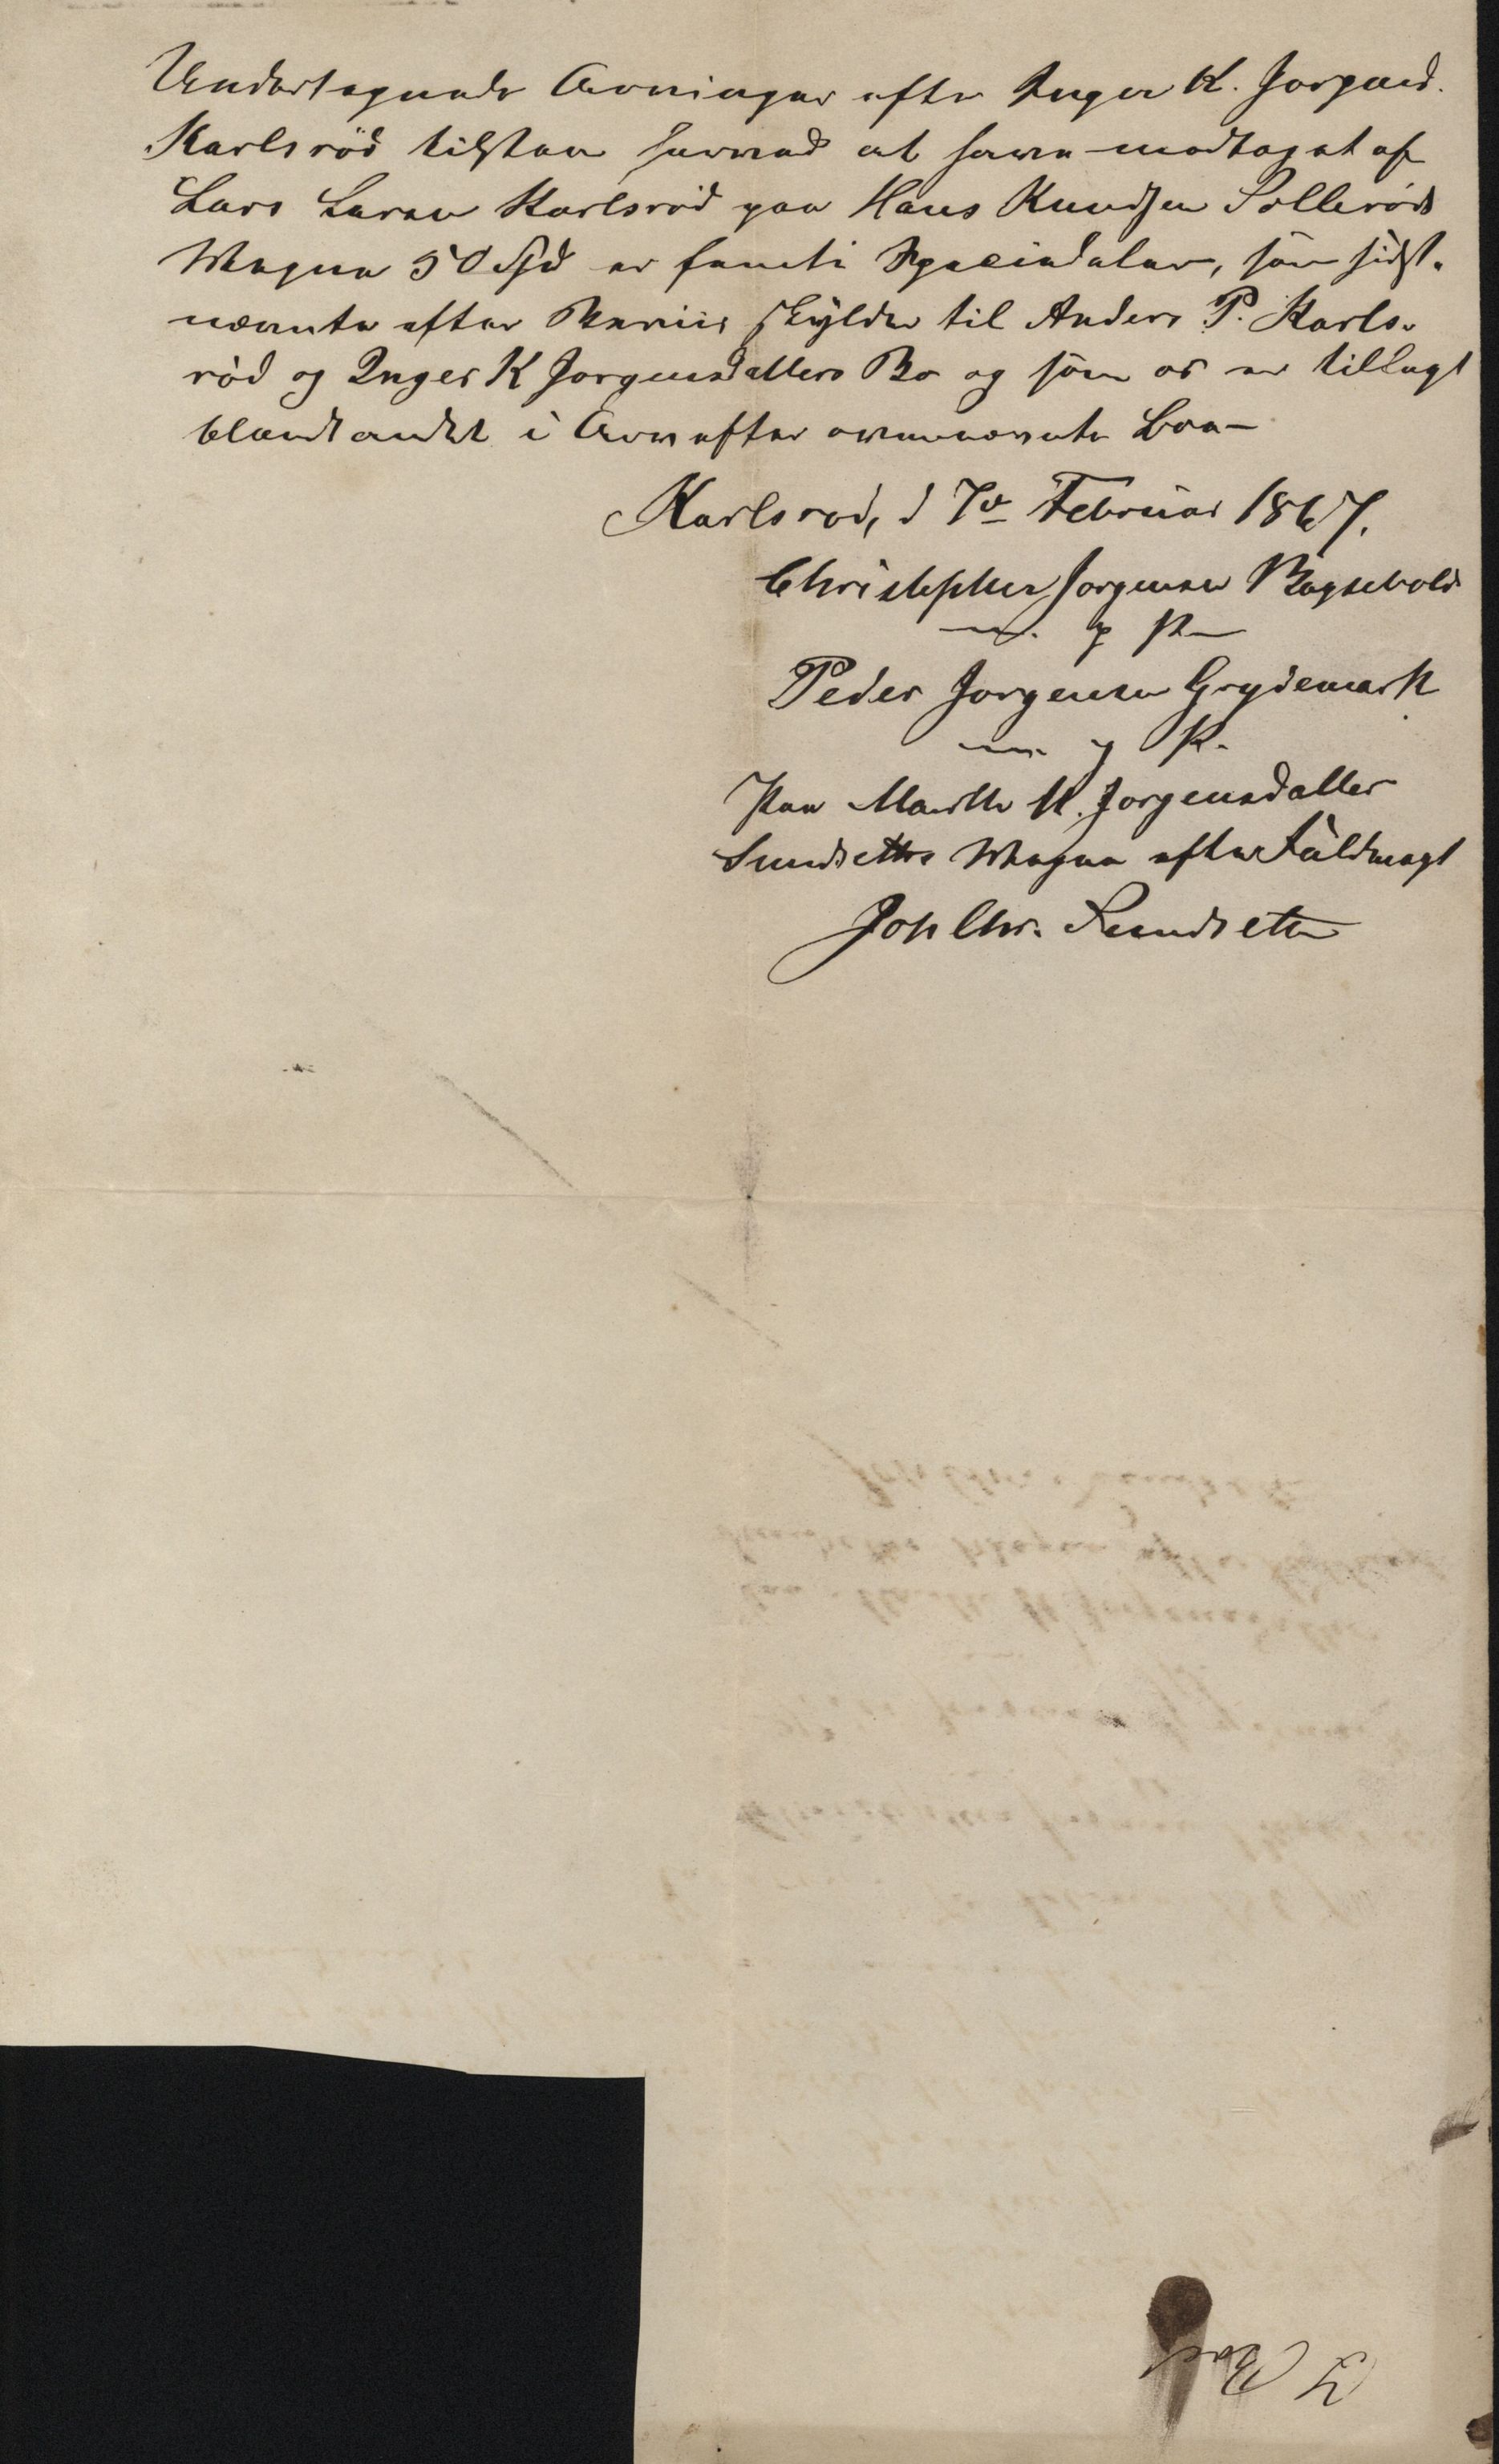 Undertegnede Arvinger efter Inger K. Jorgensd.
Karlsröd tilstaar herved at have modtaget af
Lars Larsen Karlsröd paa Hans Knudsen Solleröds
Wegne 50 Spd er femti Speciedaler, som sidst-
nævnte efter Beviis skylder til Anders P. Karls-
röd og Inger K Jorgensdatters Bo og som os er tillagt
blandt andet i Arv efter ovennævnte Boe-
Karlsrod, d 7de Februar 1867.
Christopher Jorgensen
m. p P.
Peder Jorgensen Grydemark
m p P.
Paa Marthe K. Jorgensdatter
Sundsettes Wegne efter Fuldmagt
Joh Chr. Sundsette